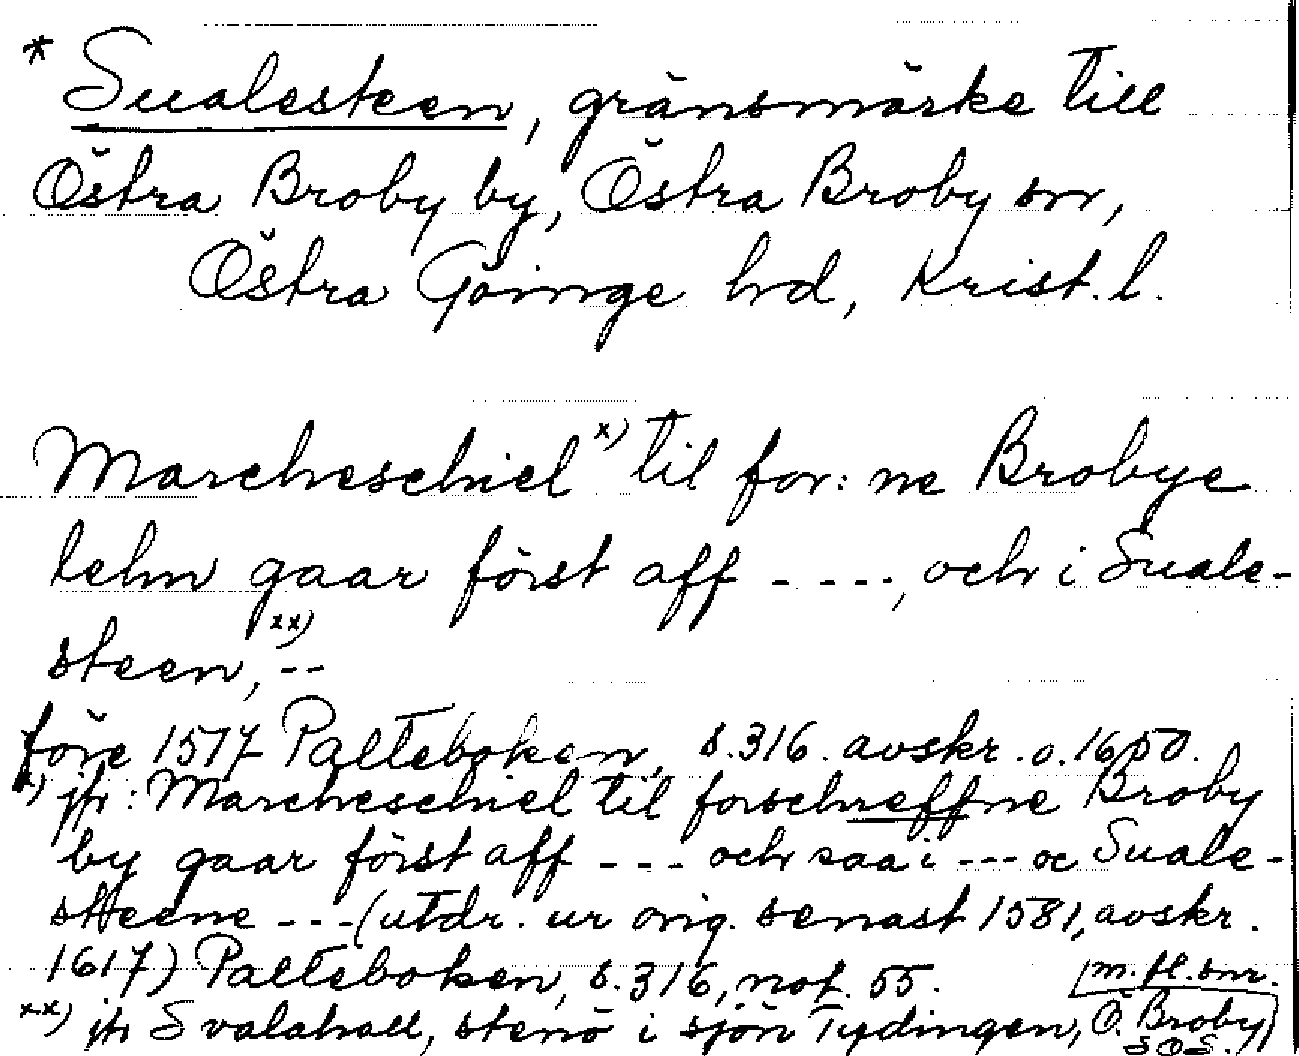 * Sualesteen, gränsmärke till
Östra Broby by, Östra Broby snr,
Östra Göinge hrd, Krist. l.
Marcheschiel x) til for: ne Brobye
lehn gaar först aff - - - -, och i Suale-
steen, xx) - -
före 1577 Palteboken, s. 316. avskr. o. 1650.
x) jfr: Marcheschiel til forschreffne Broby
by gaar först aff - - - och saa i - - - oc Suale-
steene - - - (utdr. ur orig. senast 1581, avskr.
1617) Palteboken, s. 316, not. 55.
xx) jfr Svalahall, stenö i sjön Tydingen, Ö. Broby
[m. fl. snr.
SOS.]